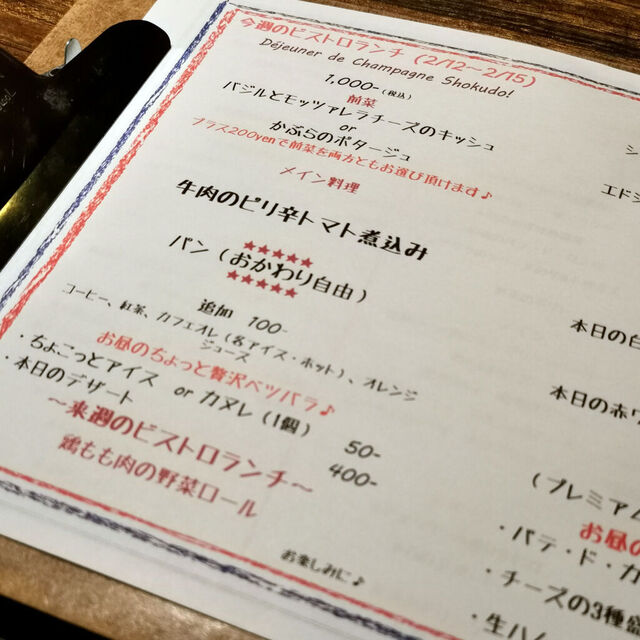 今週のビストロランチ (2/12～2/15)
Déjeuner de Champagne Shokudo!
1,000-(税込)
前菜
バジルとモッツァレラチーズのキッシュ
or
かぶらのポタージュ
プラス200yenで前菜を両方ともお選び頂けます♪
メイン料理
牛肉のピリ辛トマト煮込み
★★★★★
パン (おかわり自由)
★★★★★
追加 100-
コーヒー、紅茶、カフェオレ (各アイス・ホット)、オレンジ
ジュース
お昼のちょっと贅沢ベツバラ♪
・ちょこっとアイス or カヌレ (1個) 50-
・本日のデザート 400-
～来週のビストロランチ～
鶏もも肉の野菜ロール
お楽しみに♪
シ
エドシ
本日の白
本日の赤ワ
(プレミアム
お昼の
・パテ・ド・カ
・チーズの3種盛
・生ハム